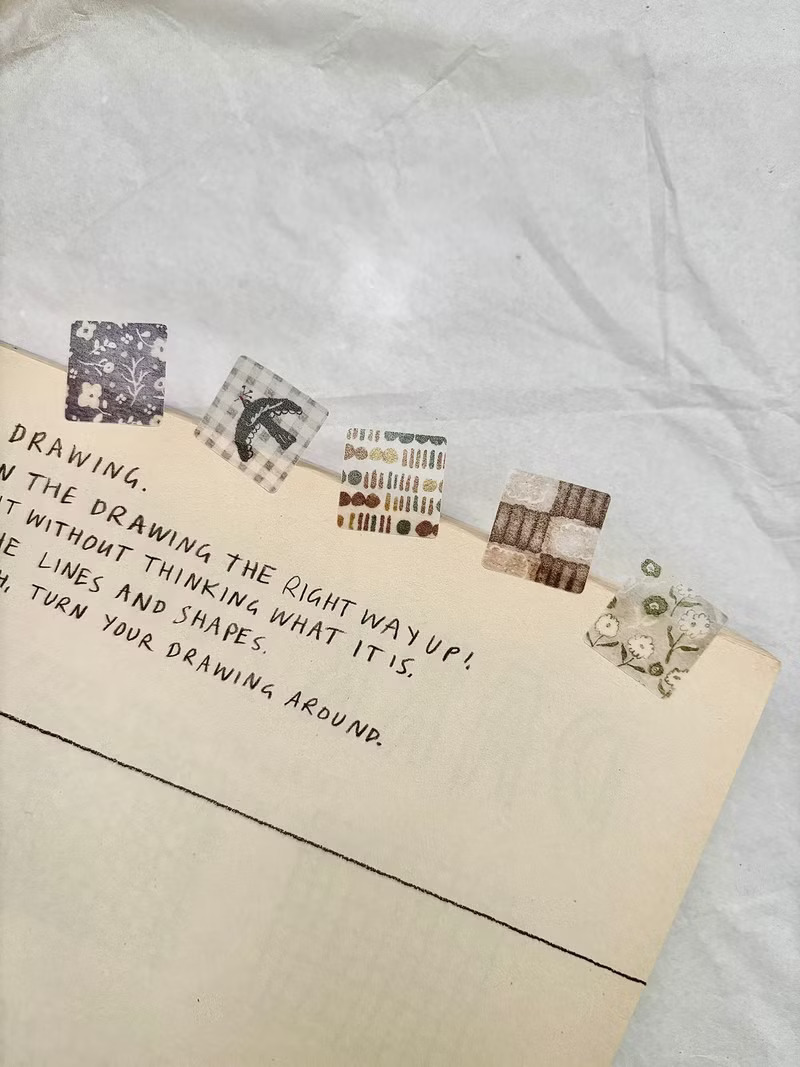 DRAWING.
THE DRAWING THE RIGHT WAY UP!
WITHOUT THINKING WHAT IT IS.
LINES AND SHAPES.
TURN YOUR DRAWING AROUND.